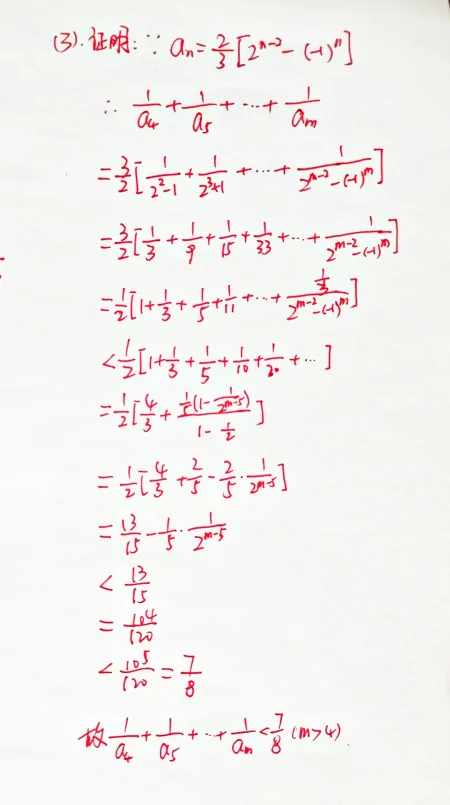 (3).证明:∵ aₙ=2/3[2^(n-2)-(-1)^n]
∴ 1/a₄+1/a₅+⋯+1/aₘ
=3/2[1/(2²-1)+1/(2³+1)+⋯+1/(2^(m-2)-(-1)^m)]
=3/2[1/3+1/9+1/15+1/33+⋯+1/(2^(m-2)-(-1)^m)]
=1/2[1+1/3+1/5+1/11+⋯+(1/3)/(2^(m-2)-(-1)^m)]
<1/2[1+1/3+1/5+1/10+1/20+⋯]
=1/2[4/3+(1/5(1-1/2^(m-5)))/(1-1/2)]
=1/2[4/3+2/5-2/5·1/2^(m-5)]
=13/15-1/5·1/2^(m-5)
<13/15
=104/120
<105/120=7/8
故1/a₄+1/a₅+⋯+1/aₘ<7/8(m>4)